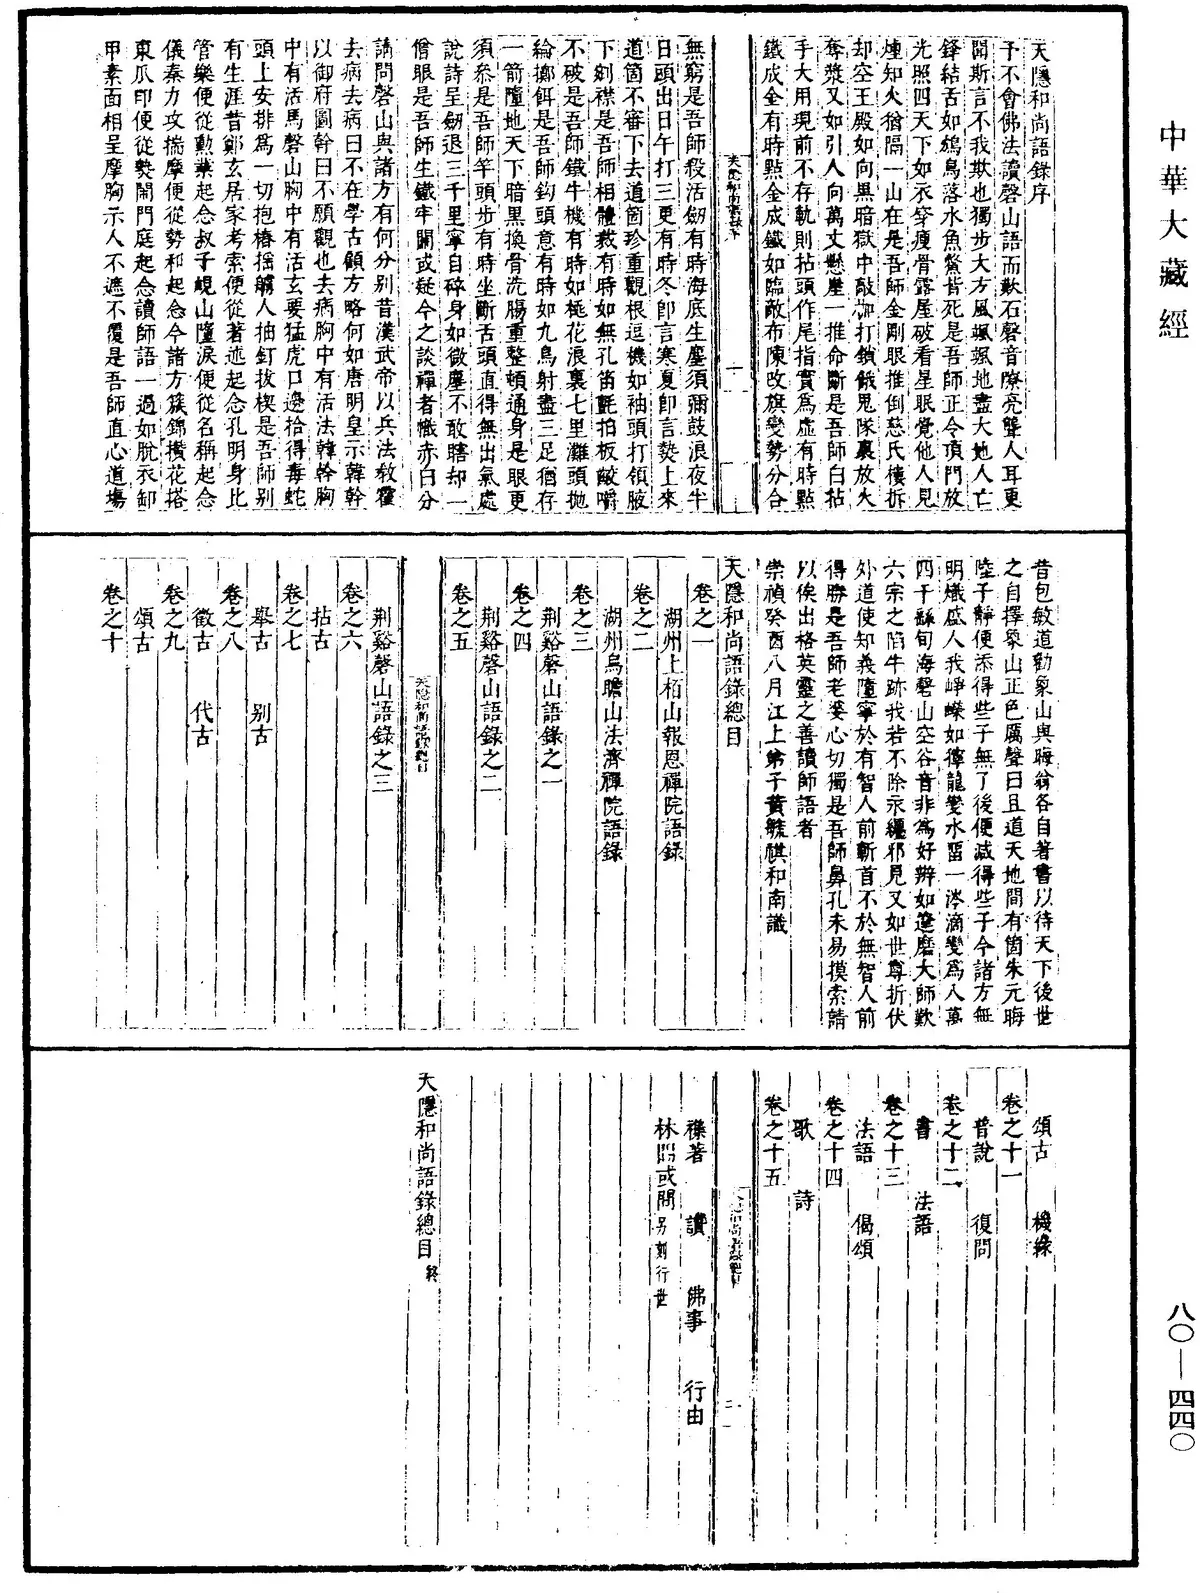 中華大藏經
天隱和尚語錄序
予不會佛法讀磬山語而歎石磬音嘹亮聾人耳更
聞斯言不我欺也獨步大方風颯颯地盡大地人亡
鋒結舌如鴆鳥落水魚鱉皆死是吾師正令頂門放
光照四天下如衣穿瘦骨露屋破看星眠覺他人見
煙知火猶隔一山在是吾師金剛眼推倒慈氏樓拆
却空王殿如向黑暗獄中敲枷打鎖餓鬼隊裏放火
奪漿又如引人向萬丈懸崖一推命斷是吾師白拈
手大用現前不存軌則拈頭作尾指實為虛有時點
鐵成金有時點金成鐵如臨敵布陳改旗變勢分合
無窮是吾師殺活劒有時海底生塵須彌鼓浪夜半
日頭出日午打三更有時冬即言寒夏即言熱上來
道箇不審下去道箇珍重觀根逗機如袖頭打領腋
下剜襟是吾師相體裁有時如無孔笛氈拍板齩嚼
不破是吾師鐵牛機有時如極花浪裏七里灘頭拋
綸擲餌是吾師鈎頭意有時如九鳥射盡三足猶存
一箭墮地天下暗黑換骨洗腸重整頓通身是眼更
須叅是吾師竿頭步有時坐斷舌頭直得無出氣處
說詩呈劒退三千里寧自碎身如微塵不敢瞎却一
僧眼是吾師生鐵牢關或疑今之談禪者幟赤白分
請問磬山與諸方有何分別昔漢武帝以兵法教霍
去病去病曰不在學古顧方略何如唐明皇示韓幹
以御府圖幹曰不願觀也去病胸中有活法韓幹胸
中有活馬磬山胸中有活玄要猛虎口邊拾得毒蛇
頭上安排為一切抱樁搖艣人抽釘拔楔是吾師別
有生涯昔鄭玄居家考索便從著述起念孔明身比
管樂便從勳業起念叔子峴山墮淚便從名稱起念
儀秦力攻揣摩便從勢利起念今諸方簇錦攢花搭
東瓜印便從熱閙門庭起念讀師語一過如脫衣卸
甲素面相呈摩胸示人不遮不覆是吾師直心道場
昔包敏道勸象山與晦翁各自著書以待天下後世
之自擇象山正色厲聲曰且道天地間有箇朱元晦
陸子靜便添得些子無了後便減得些子今諸方無
明熾盛人我崢嶸如獰龍變水畱一涔滴變為八萬
四千繇旬海磬山空谷音非為好辨如達磨大師歎
六宗之陷牛跡我若不除永纏邪見又如世尊折伏
外道使知義墮寧於有智人前斬首不於無智人前
得勝是吾師老婆心切獨是吾師鼻孔未易摸索請
以俟出格英靈之善讀師語者
崇禎癸酉八月江上弟子黃毓祺和南識
天隱和尚語錄總目
卷之一
湖州上栢山報恩禪院語錄
卷之二
湖州烏瞻山法濟禪院語錄
卷之三
荊谿磬山語錄之一
卷之四
荊谿磬山語錄之二
卷之五
荊谿磬山語錄之三
卷之六
拈古
卷之七
舉古 別古
卷之八
徵古 代古
卷之九
頌古
卷之十
頌古 機緣
卷之十一
普說 復問
卷之十二
書 法語
卷之十三
法語 偈頌
卷之十四
歌 詩
卷之十五
襍著 讚 佛事 行由
林間或問另刻行世
天隱和尚語錄總目終
八〇—四四〇